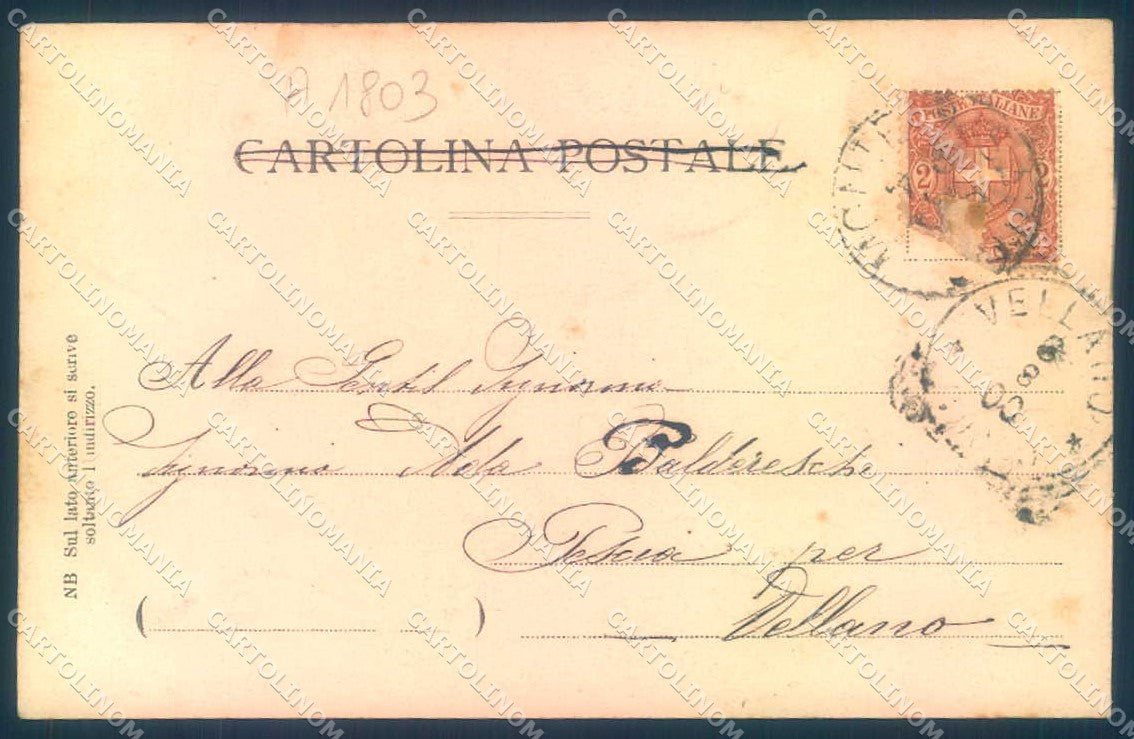 A 1803
CARTOLINA POSTALE
POSTE ITALIANE
2 2
VELLANO
8 00
NB Sul lato anteriore si scrive
soltanto l'indirizzo.
Alla Gentil Signorina
Signorina Ada Baldereschi
Pescia per
Vellano
( )
CARTOLINOMANIA